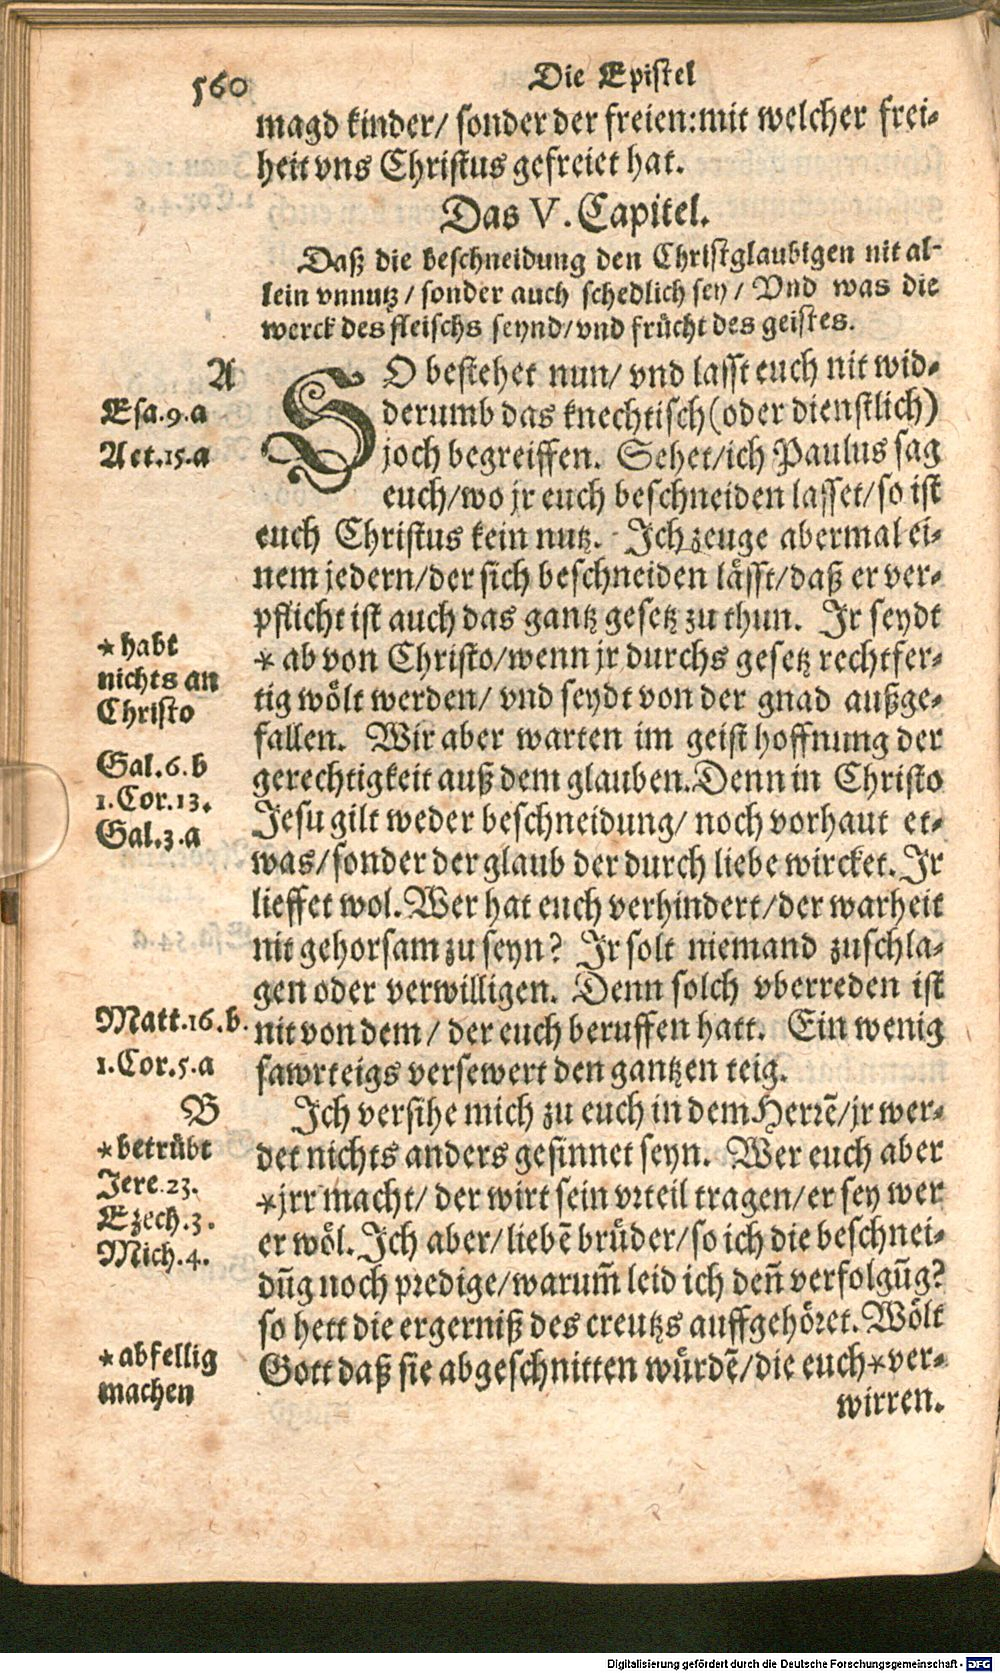 560
Die Epistel
magd kinder/ sonder der freien: mit welcher frei-
heit vns Christus gefreiet hat.
Das V. Capitel.
Daß die beschneidung den Christglaubigen nit al-
lein vnnutz / sonder auch schedlich sey / Vnd was die
werck des fleischs seynd/ vnd frücht des geistes.
A
Esa.9.a
Act.15.a
SO bestehet nun/ vnd lasst euch nit wid-
derumb das knechtisch (oder dienstlich)
joch begreiffen. Sehet/ ich Paulus sag
euch/ wo jr euch beschneiden lasset/ so ist
euch Christus kein nutz. Ich zeuge abermal ei-
nem jedern/ der sich beschneiden lässt/ daß er ver-
pflicht ist auch das gantz gesetz zu thun. Ir seydt
* habt
nichts an
Christo
* ab von Christo/ wenn jr durchs gesetz rechtfer-
tig wölt werden/ vnd seydt von der gnad außge-
fallen. Wir aber warten im geist hoffnung der
Gal.6.b
1.Cor.13.
Gal.3.a
gerechtigkeit auß dem glauben. Denn in Christo
Jesu gilt weder beschneidung/ noch vorhaut et-
was/ sonder der glaub der durch liebe wircket. Ir
lieffet wol. Wer hat euch verhindert/ der warheit
nit gehorsam zu seyn? Ir solt niemand zuschla-
gen oder verwilligen. Denn solch vberreden ist
Matt.16.b.
1.Cor.5.a
nit von dem / der euch beruffen hatt. Ein wenig
fawrteigs versewert den gantzen teig.
B
* betrübt
Jere.23.
Ezech.3.
Mich.4.
Ich versihe mich zu euch in dem Herrẽ/ jr wer-
det nichts anders gesinnet seyn. Wer euch aber
* jrr macht/ der wirt sein vrteil tragen/ er sey wer
er wöl. Ich aber/ liebẽ brüder/ so ich die beschnei-
dũg noch predige/ warum̃ leid ich deñ verfolgũg?
so hett die ergerniß des creutzs auffgehöret. Wölt
* abfellig
machen
Gott daß sie abgeschnitten würdẽ/ die euch * ver-
wirren.
Digitalisierung gefördert durch die Deutsche Forschungsgemeinschaft - DFG